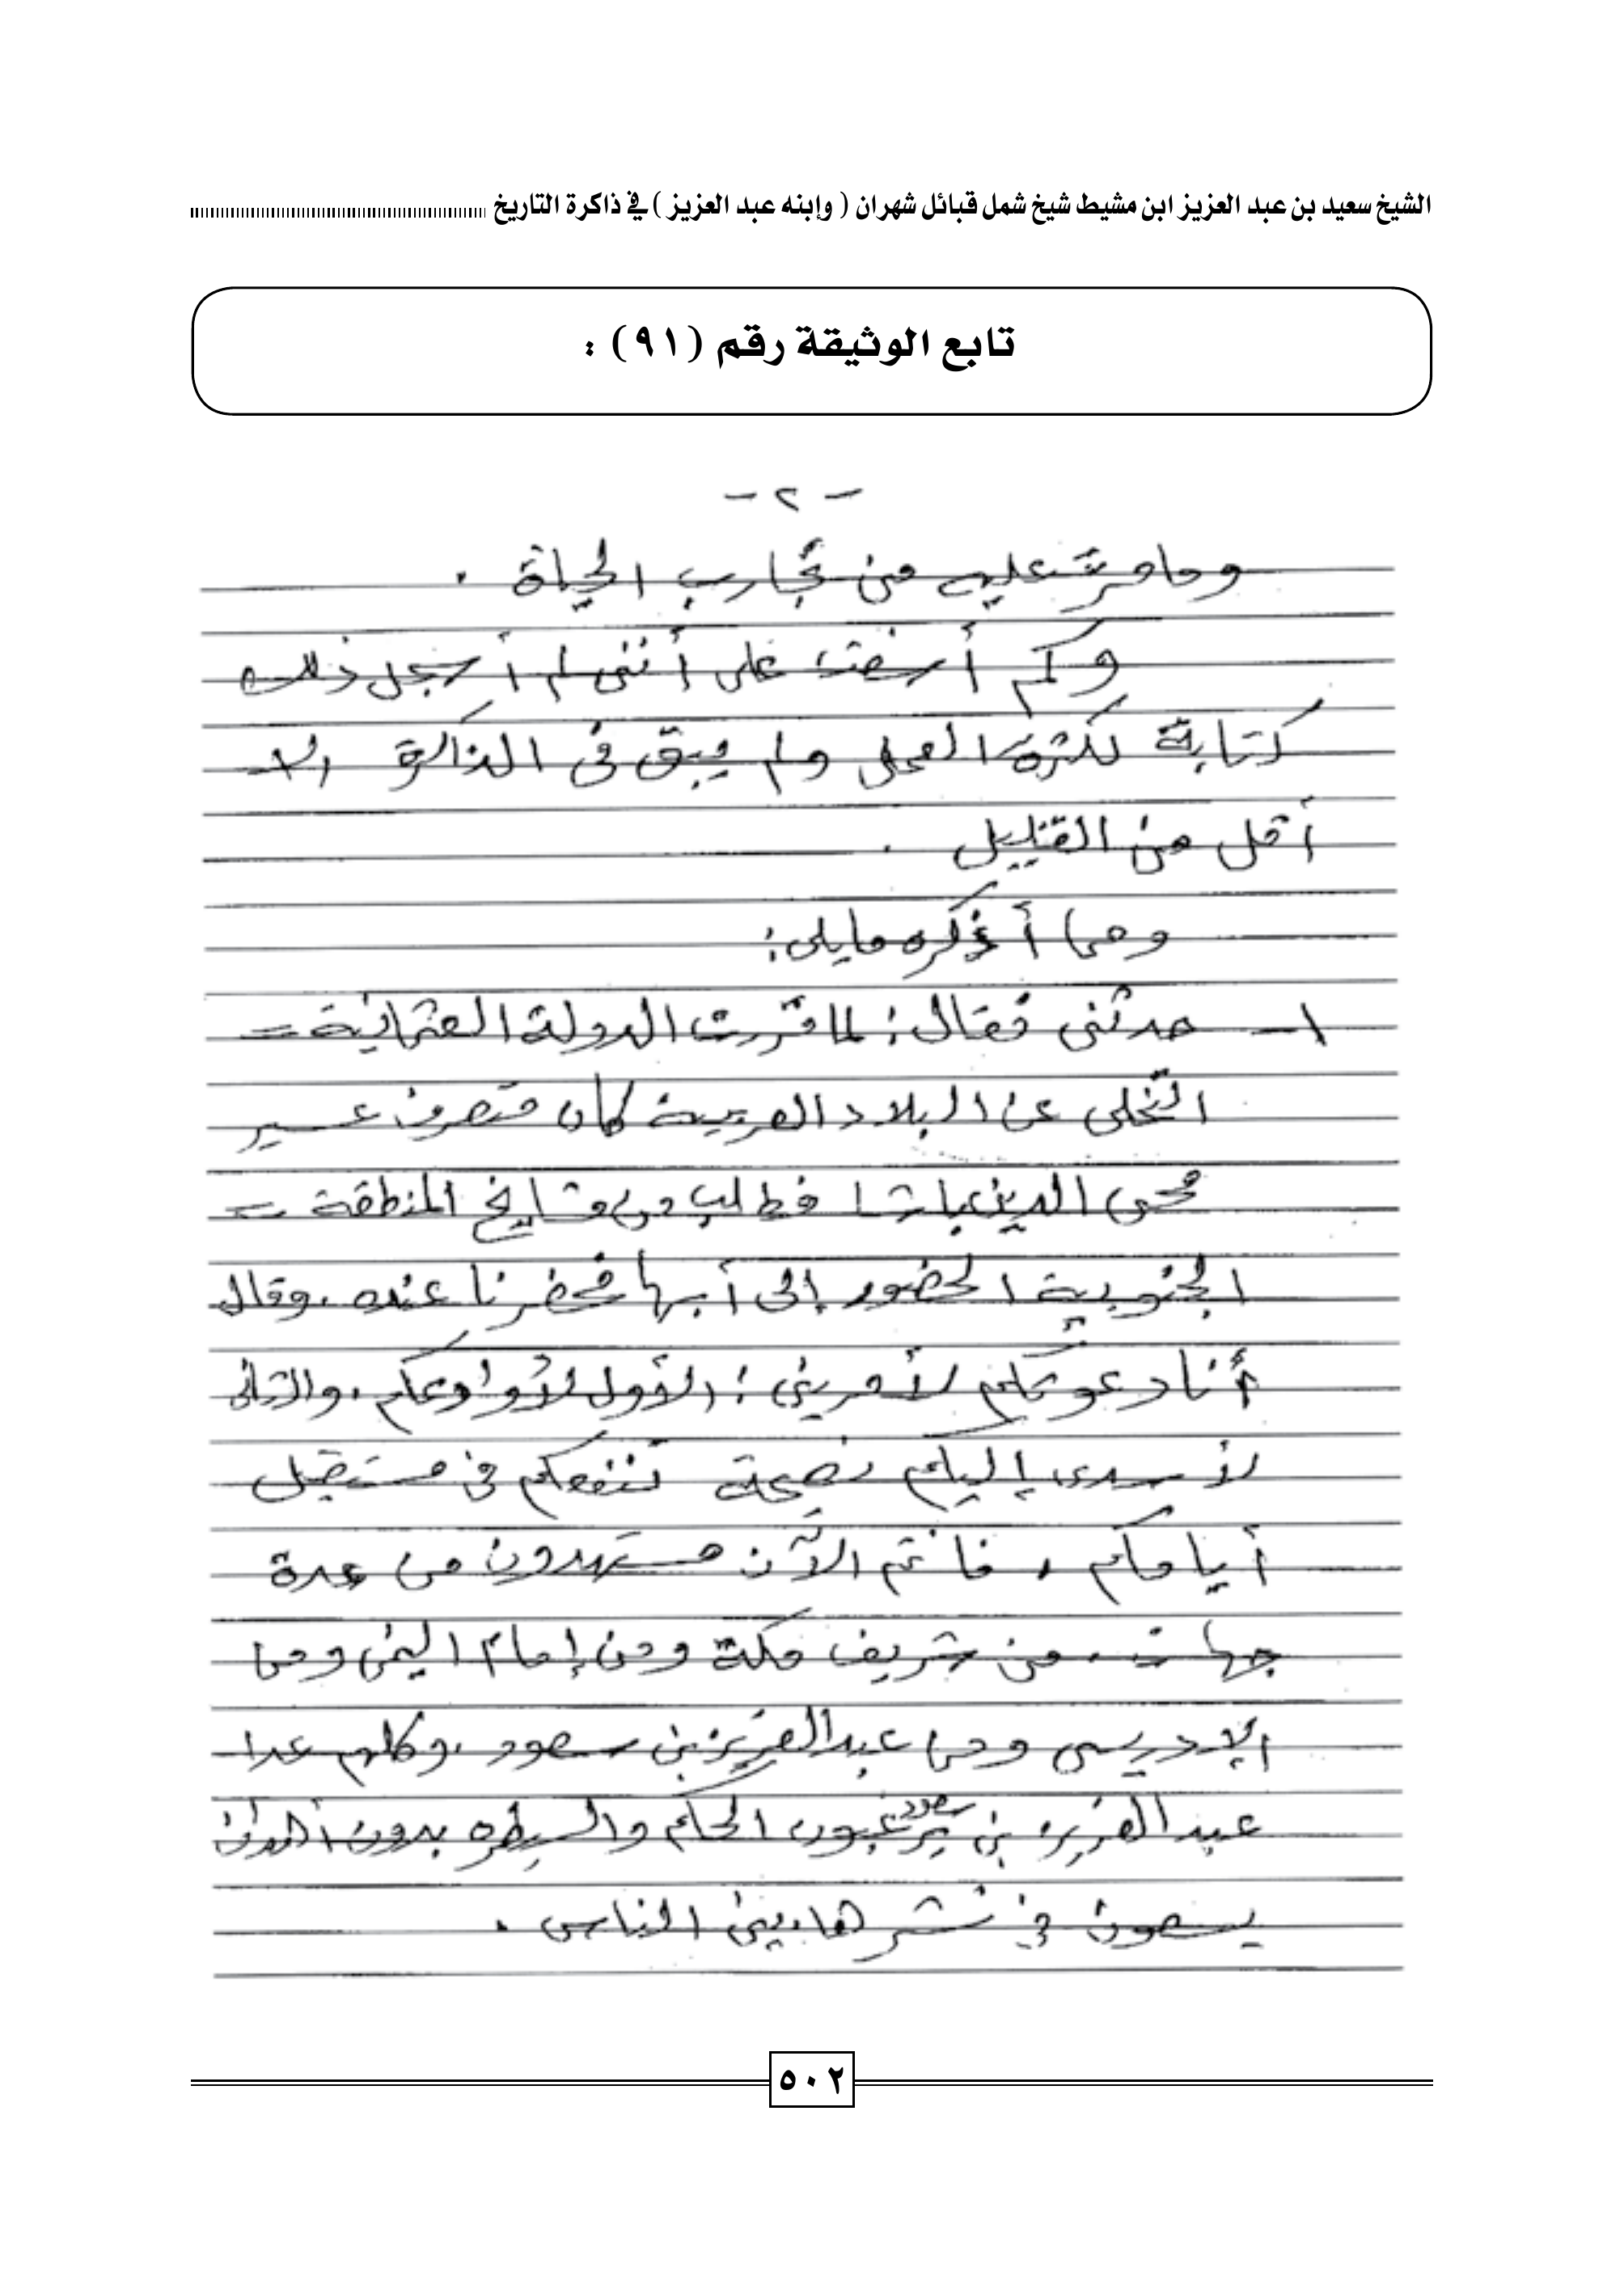 الشيخ سعيد بن عبد العزيز ابن مشيط شيخ شمل قبائل شهران ( وإبنه عبد العزيز ) في ذاكرة التاريخ
تابع الوثيقة رقم (٩١) :
- ٢ -
وما مرت عليه من تجارب الحياة .
وكم أسفت على أنني لم أسجل ذلك
كتابة لكثرة العمل ولم يبق في الذاكرة إلا
أقل من القليل .
ومما أذكره مايلي :
١ - حدثني فقال : لما قررت الدولة العثمانية =
التخلي عن البلاد العربية كان متصرف عسير
محي الدين باشا فطلب من مشايخ المنطقة =
الجنوبية الحضور إلى أبها فحضرنا عنده . وقال
أنا دعوتكم لأمرين : الأول لأوادعكم . والثاني
لأسدي إليكم نصيحة تنفعكم في مستقبل
أيامكم ، فانتم الآن مستهدون من عدة
جهات . من شريف مكة ومن إمام اليمن ومن
الإدريسي ومن عبد العزيز بن سعود . وكلهم عدا
عبد العزيز بن سعود يرغبون الحكم والسيطره بدون أهداف
يسعون في نشرها بين الناس .
٥٠٢